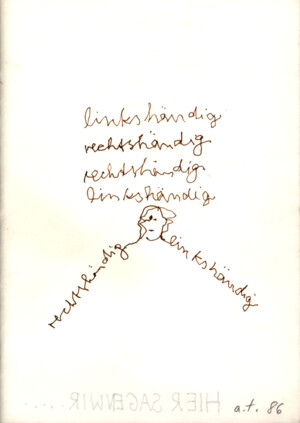 linkshändig
rechtshändig
rechtshändig
linkshändig
rechtshändig linkshändig
HIER SAGEN WIR.....
a.t. 86